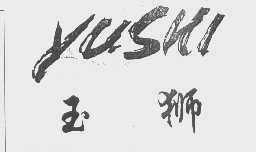 YUSHI
玉狮